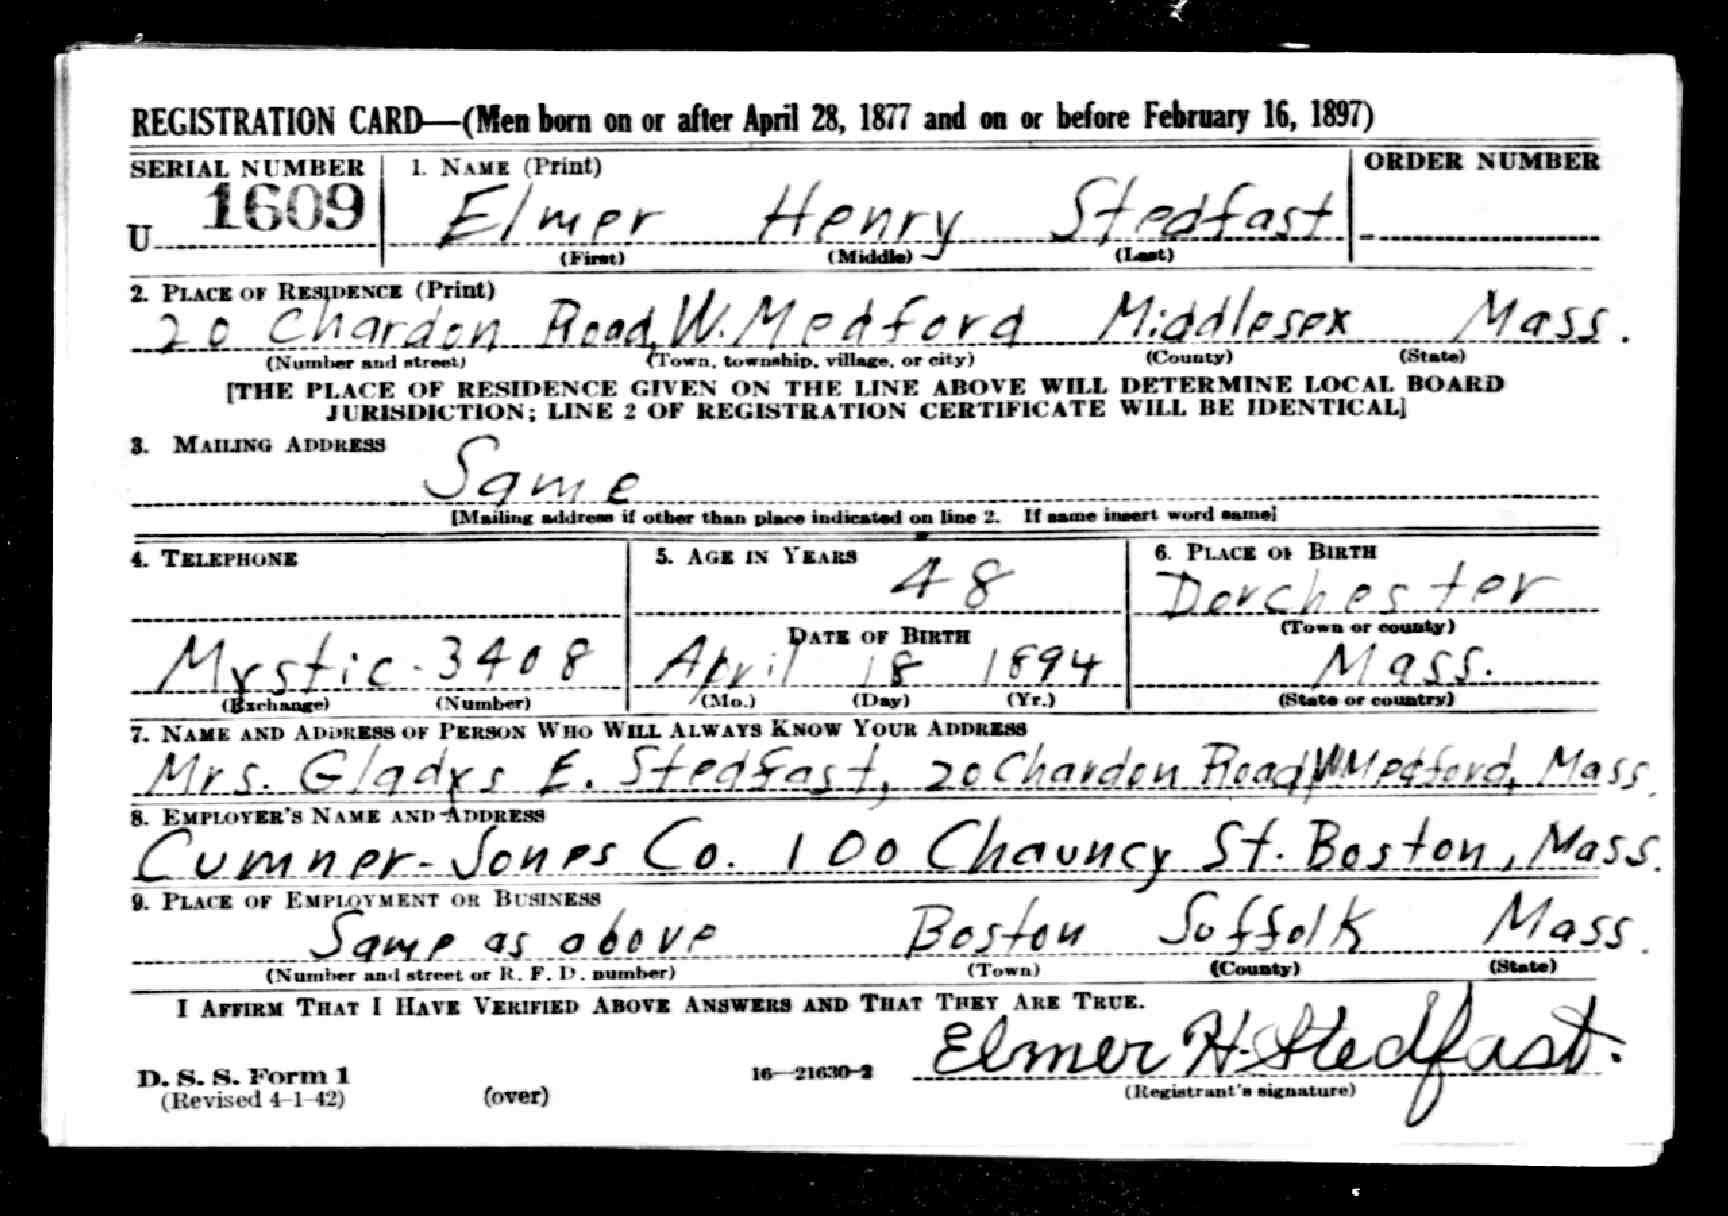 REGISTRATION CARD—(Men born on or after April 28, 1877 and on or before February 16, 1897)
SERIAL NUMBER 1. NAME (Print) ORDER NUMBER
U 1609 Elmer Henry Stedfast
(First) (Middle) (Last)
2. PLACE OF RESIDENCE (Print)
20 Chardon Road, W. Medford Middlesex Mass.
(Number and street) (Town, township, village, or city) (County) (State)
[THE PLACE OF RESIDENCE GIVEN ON THE LINE ABOVE WILL DETERMINE LOCAL BOARD
JURISDICTION; LINE 2 OF REGISTRATION CERTIFICATE WILL BE IDENTICAL]
3. MAILING ADDRESS
Same
[Mailing address if other than place indicated on line 2. If same insert word same]
4. TELEPHONE 5. AGE IN YEARS 6. PLACE OF BIRTH
48 Dorchester
DATE OF BIRTH (Town or county)
Mystic-3408 April 18 1894 Mass.
(Exchange) (Number) (Mo.) (Day) (Yr.) (State or country)
7. NAME AND ADDRESS OF PERSON WHO WILL ALWAYS KNOW YOUR ADDRESS
Mrs. Gladys E. Stedfast, 20 Chardon Road, W Medford, Mass.
8. EMPLOYER'S NAME AND ADDRESS
Cumner-Jones Co. 100 Chauncy St. Boston, Mass.
9. PLACE OF EMPLOYMENT OR BUSINESS
Same as above Boston Suffolk Mass.
(Number and street or R. F. D. number) (Town) (County) (State)
I AFFIRM THAT I HAVE VERIFIED ABOVE ANSWERS AND THAT THEY ARE TRUE.
Elmer H. Stedfast.
D. S. S. Form 1 16—21630-2 (Registrant's signature)
(Revised 4-1-42) (over)